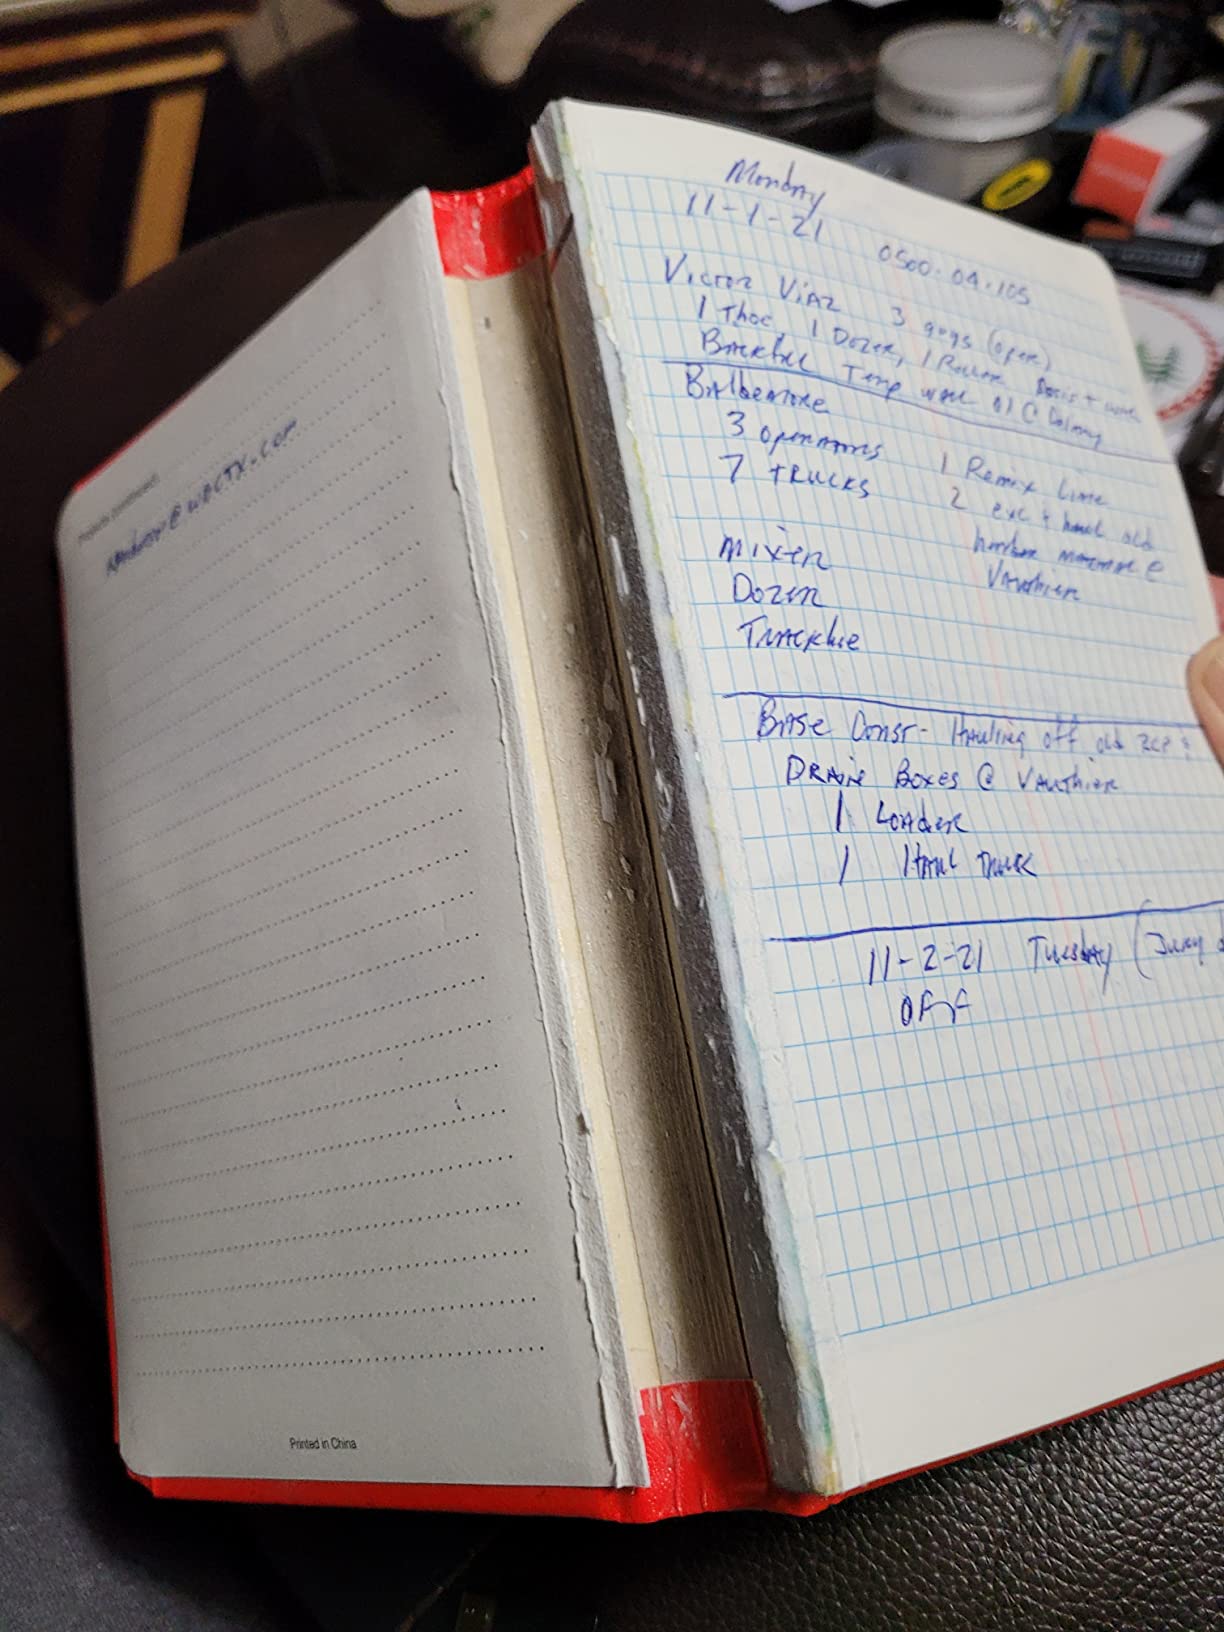 Projects (continued)
@wbctx.com
Printed in China
Monday
11-1-21
0500.04.105
Victor Viaz 3 guys (oper)
1 Thoe, 1 Dozer, 1 Roller
Backfill Temp wall 01 @ Colony
Balbentore
3 operators
7 trucks
1 Remix Lime
2 exc + haul old
@
Vauthier
Mixer
Dozer
Trackhoe
Base Const - Hauling off old RCP &
Drain Boxes @ Vauthier
1 Loader
1 Haul Truck
11-2-21 Tuesday (Jury
OFF